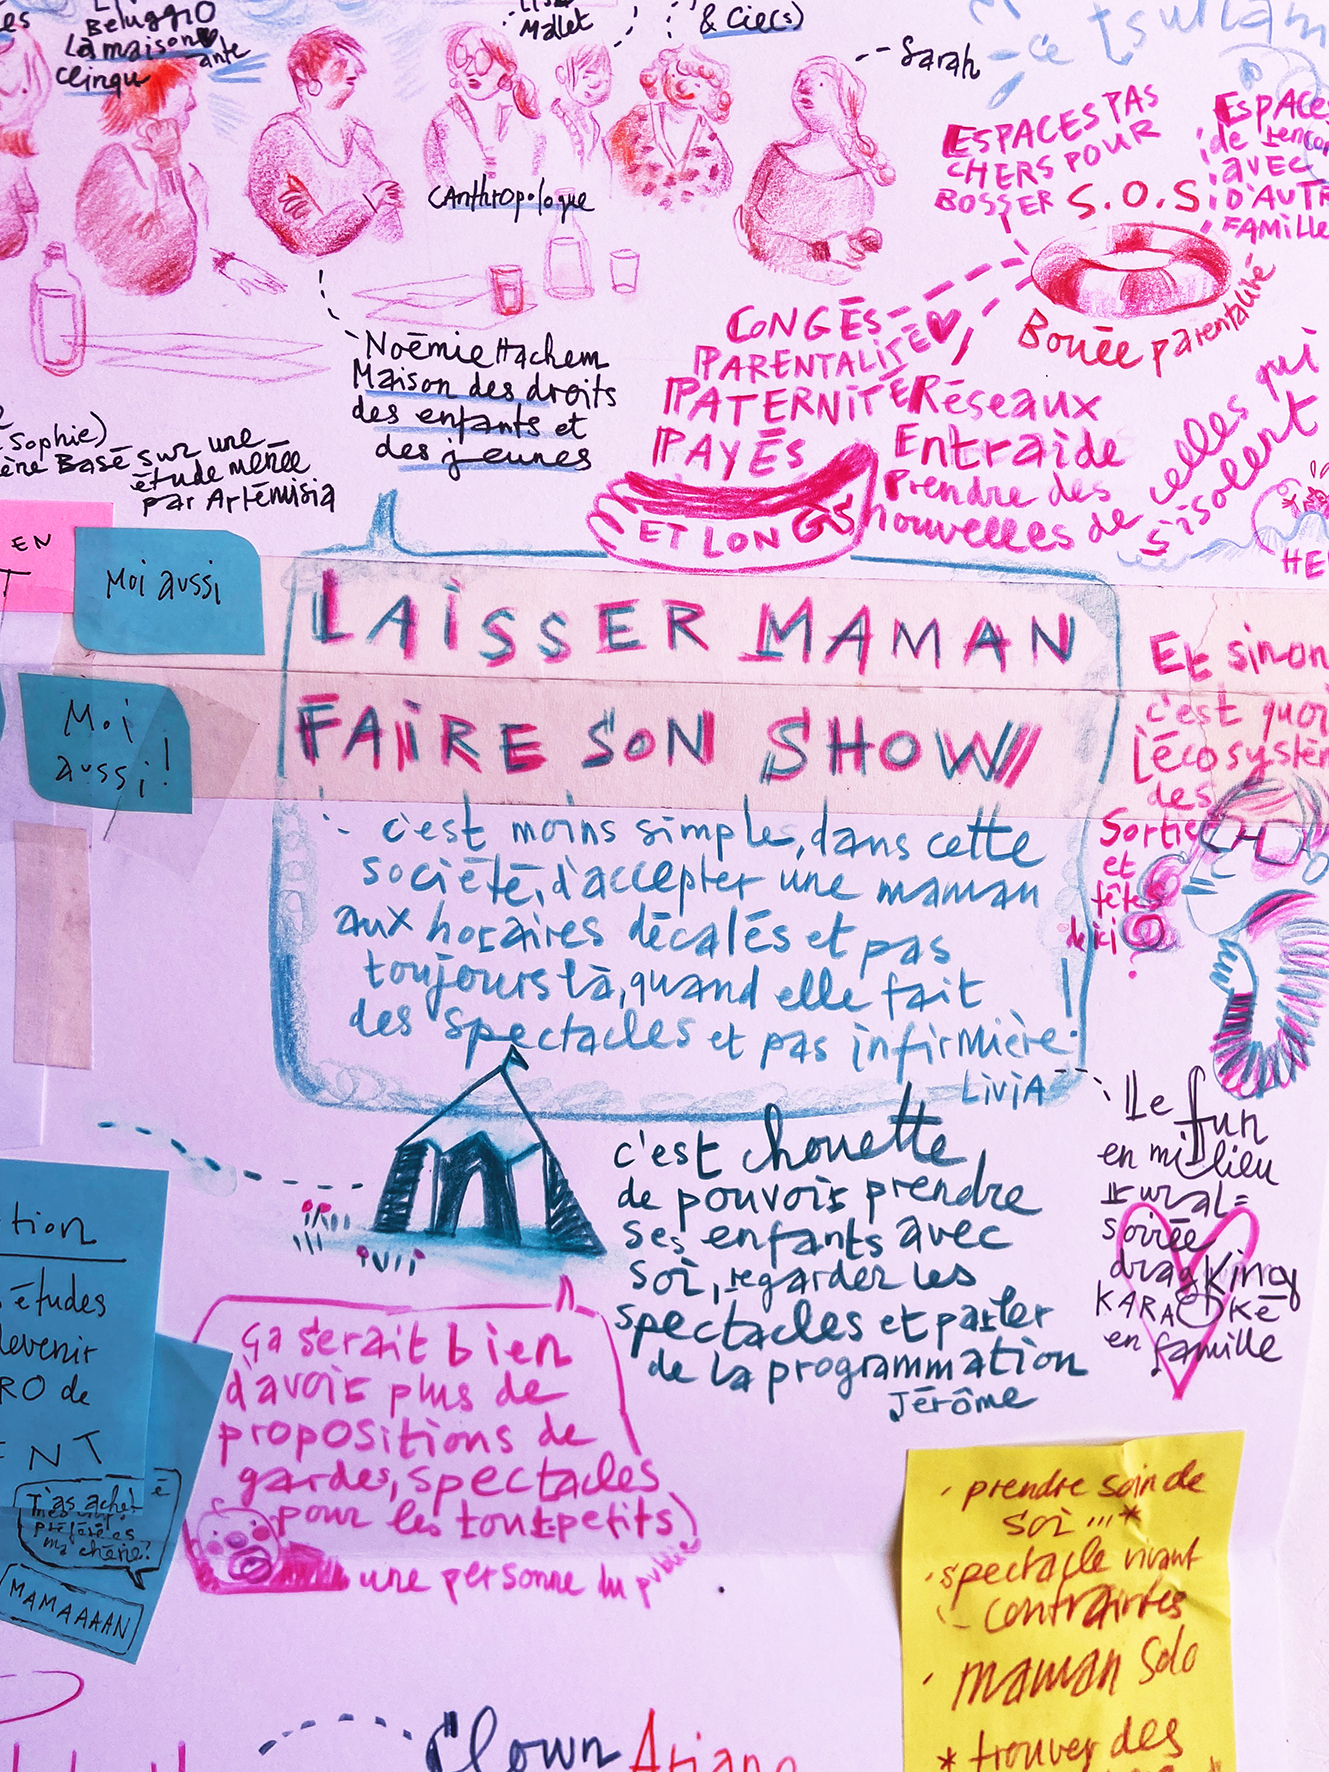 Beluggio
La maison
ante
Clinqu
Mallet
& Cie(s)
Sarah
Anthropologue
ESPACES PAS
CHERS POUR
BOSSER
S.O.S
Espaces
de rencon
avec
D'AUTR
FAMILLE
Bouée parentalité
CONGÉS
PARENTALITÉ
PATERNITÉ
PAYÉS
ET LONGS
Réseaux
Entraide
Prendre des
nouvelles de
celles qui
s'isolent
HE
Noémie Hachem
Maison des droits
des enfants et
des jeunes
Sophie)
Basé sur une
étude menée
par Artémisia
EN
T
Moi aussi
Moi
aussi !
LAISSER MAMAN
FAIRE SON SHOW
c'est moins simple, dans cette
société, d'accepter une maman
aux horaires décalés et pas
toujours là, quand elle fait
des spectacles et pas infirmière !
LiViA
Et sinon
c'est quoi
l'écosystèm
des
Sortie
et
fêtes
de ici
?
Le fun
en milieu
rural =
soirée
drag King
KARAOKÉ
en famille
c'est chouette
de pouvoir prendre
ses enfants avec
soi, regarder les
spectacles et parler
de la programmation
Jérôme
ça serait bien
d'avoir plus de
propositions de
gardes, spectacles
pour les tout petits)
une personne du public
tion
études
devenir
RO de
ENT
T'as acheté
mes
préférées
ma chérie?
MAMAAAAN
· prendre soin de
soi ... *
· spectacle vivant
contraintes
· maman solo
* trouver des
Clown Ariane